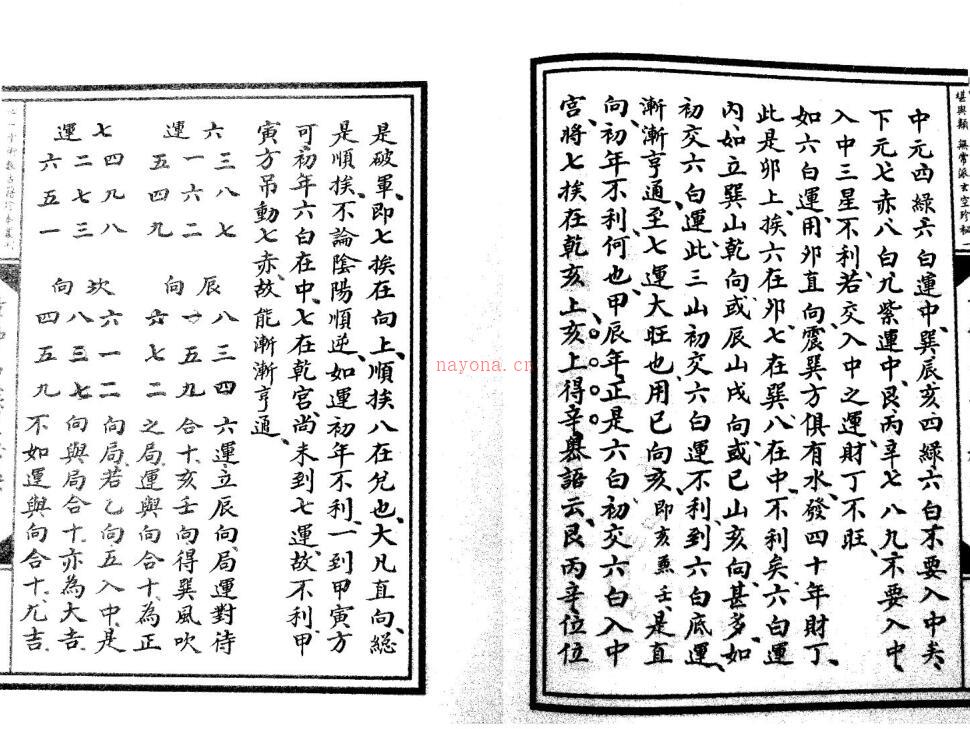 堪輿類 無常派玄空珍秘
中元四綠六白運中、巽辰亥四綠六白不要入中矣、
下元七赤八白九紫運中、艮丙辛七八九不要入中、
入中三星不利、若交入中之運財丁不旺、
如六白運、用夘直向、震巽方俱有水、發四十年財丁、
此是夘上、挨六在夘、七在巽、八在中、不利矣、六白運
內、如立巽山乾向、或辰山戌向、或巳山亥向甚多、如
初交六白運、此三山初交六白運不利、到六白底運、
漸漸亨通、至七運大旺也、用巳向亥、即亥兼壬、是直
向、初年不利、何也、甲辰年正是六白初交、六白入中
宮、將七挨在乾亥上、亥上得辛、纂語云、艮丙辛、位位
是破軍、即七挨在向上、順挨八在兌也、大凡直向、總
是順挨、不論陰陽順逆、如運初年不利、一到甲寅方
可、初年六白在中、七在乾宮、尚未到七運、故不利、甲
寅方吊動七赤、故能漸漸亨通、
六運
三八七
一六二
五四九
七運
四九八
二七三
六五一
辰向
八三四
一五九
六七二
坎向
六一二
八三七
四五九
六運立辰向、局運對待
合十、亥壬向得巽風吹
之局、運與向合十、為正
向局、若乙向五入中、是
向與局合十、亦為大吉、
不如運與向合十、尤吉、
nayona.cn